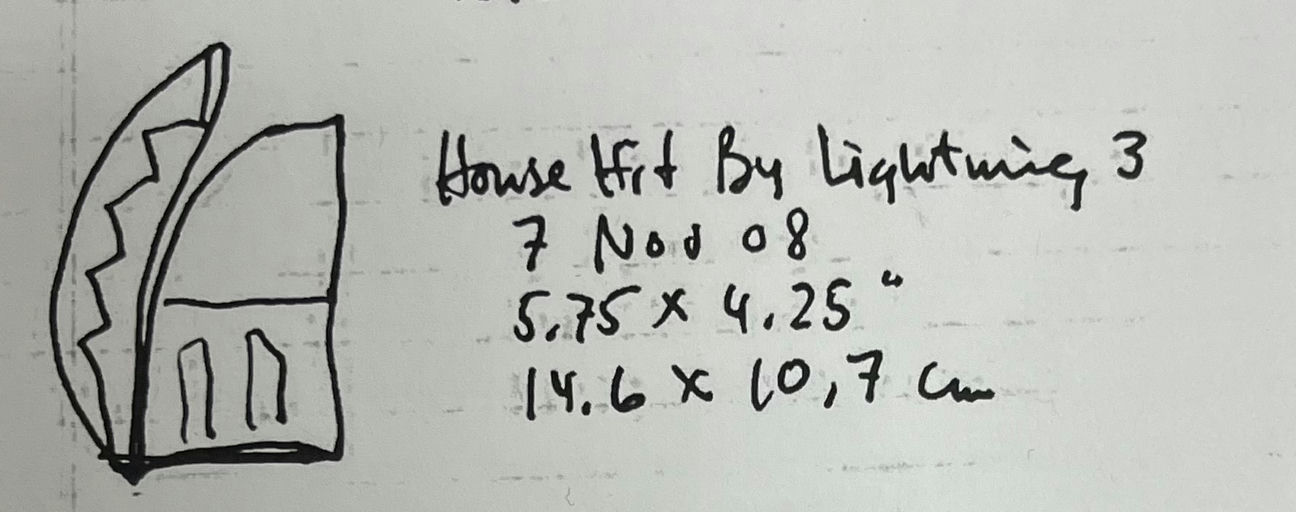 House Hit By Lightning 3
7 Nov 08
5.75 x 4.25"
14.6 x 10,7 cm